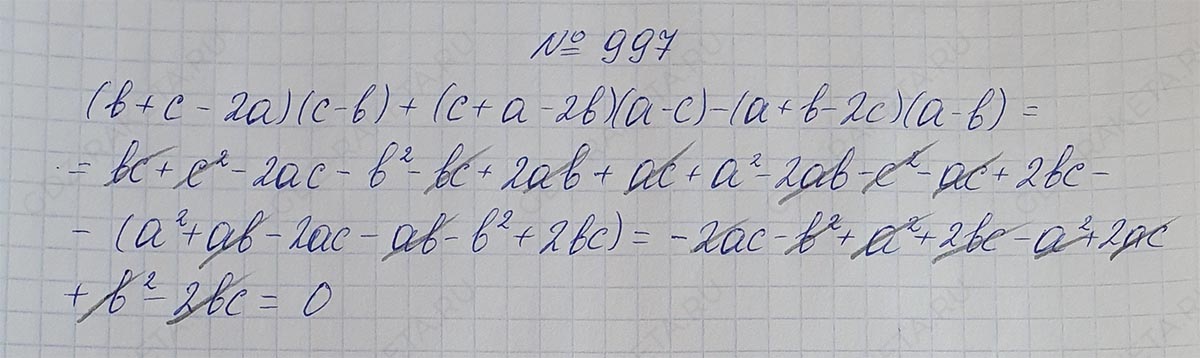 № 997
(b+c-2a)(c-b)+(c+a-2b)(a-c)-(a+b-2c)(a-b)=
=bc+c²-2ac-b²-bc+2ab+ac+a²-2ab-c²-ac+2bc-
-(a²+ab-2ac-ab-b²+2bc)=-2ac-b²+a²+2bc-a²+2ac
+b²-2bc=0